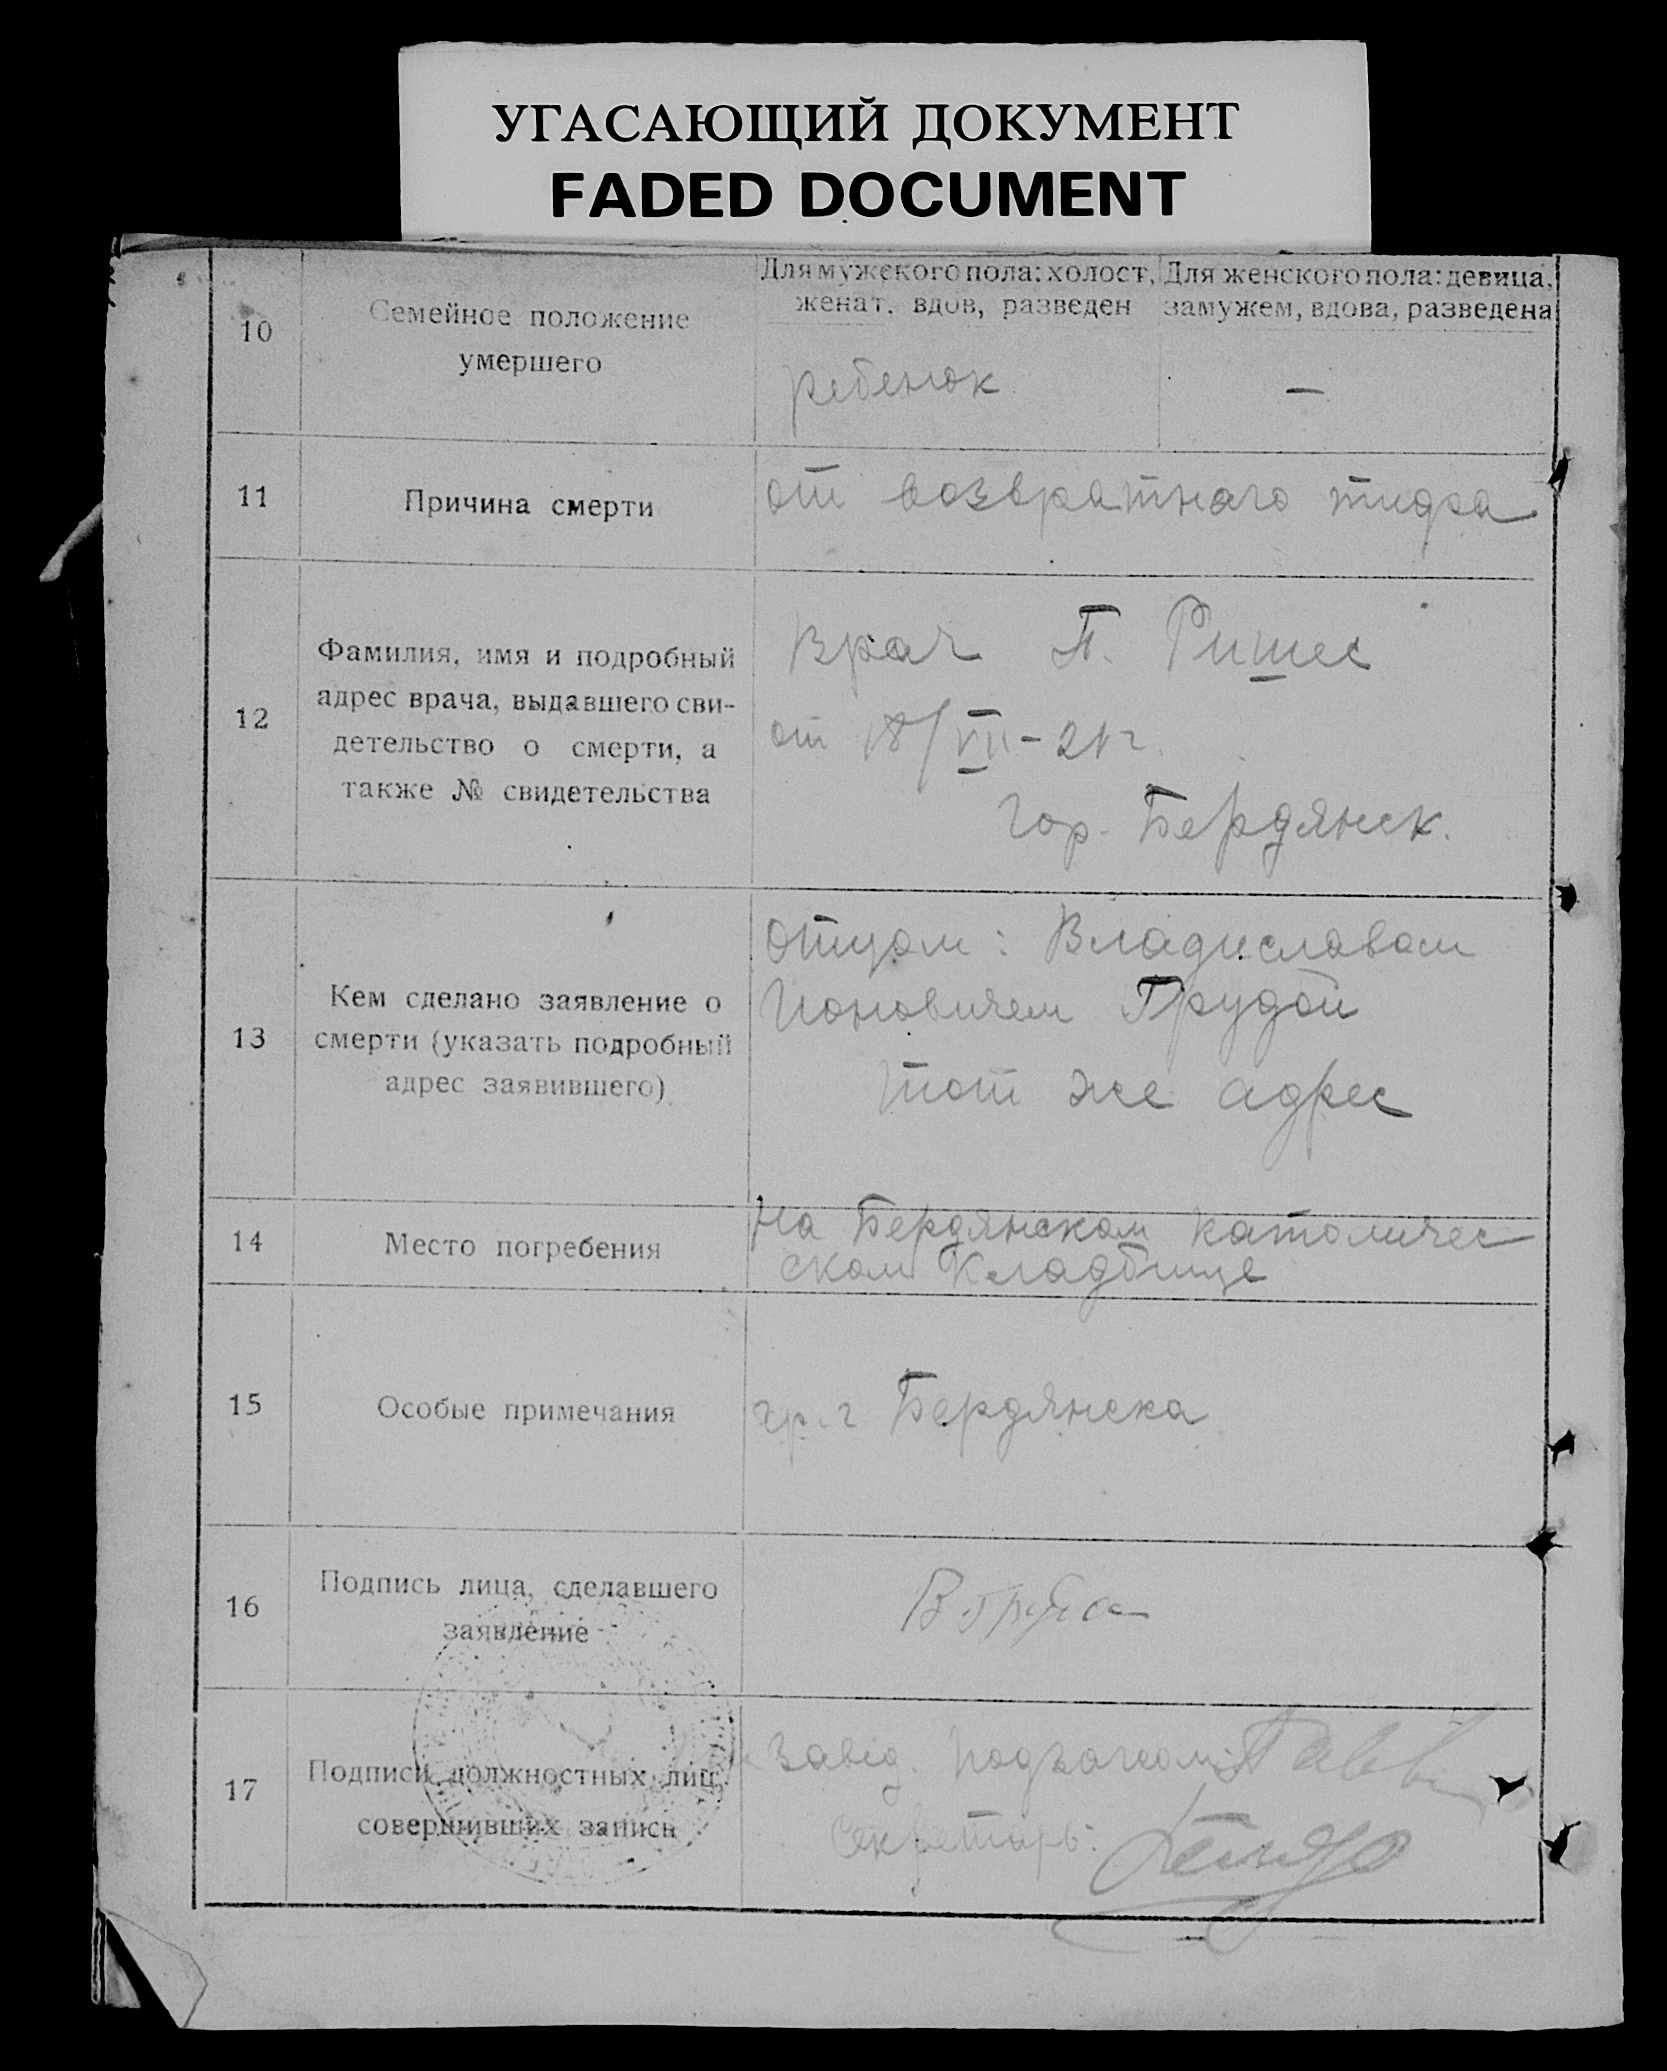 УГАСАЮЩИЙ ДОКУМЕНТ
FADED DOCUMENT
10
Семейное положение
умершего
Для мужского пола: холост,
женат, вдов, разведен
Для женского пола: девица,
замужем, вдова, разведена
ребенок
—
11
Причина смерти
от возвратного тифа
12
Фамилия, имя и подробный
адрес врача, выдавшего сви-
детельство о смерти, а
также № свидетельства
Врач П. Ришес
от 18/VII-21 г.
гор. Бердянск.
13
Кем сделано заявление о
смерти (указать подробный
адрес заявившего)
отцом: Владиславом
Ионовичем Грудой
тот же адрес
14
Место погребения
На Бердянском католичес
ском Кладбище
15
Особые примечания
гр. г Бердянска
16
Подпись лица, сделавшего
заявление
17
Подписи должностных лиц,
совершивших запись
Завед.
Секретарь: